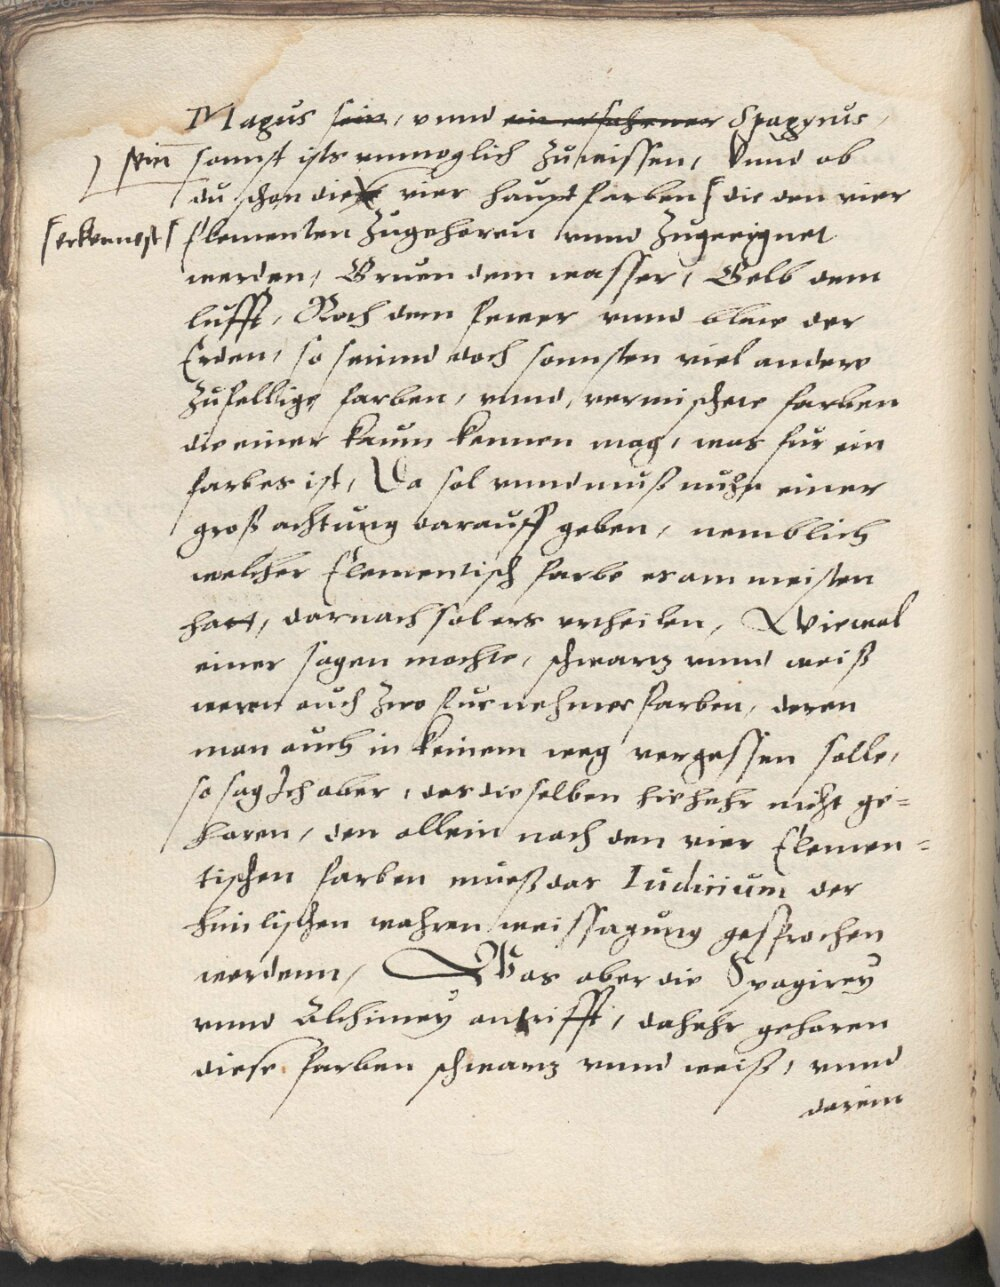 Magus sein, vnnd ein erfahrner Spagyrus,
sein
sonnst ists vnmoglich zuwissen, Vnnd ob
du schon die vier haupt farben die den vier
erkennest
Elementen zugehoren vnnd zugeeignet
werden, Gruen dem wasser, Gelb dem
lufft, Roth dem fewer vnnd blaw der
Erden, so seinnd doch sonnsten viel andere
zufellige farben, vnnd, vermischete farben
die einer kaum kennen mag, was fur ein
farbes ist, Da sol vnnd muß nuhn einer
groß achtung darauff geben, nemblich
welcher Elementisch farbe er am meisten
hatt, darnach sol ers vrtheilen, Wiewol
einer sagen mochte, schwartz vnnd weiß
weren auch zwo furnehmer farben, deren
man auch in keinem weg vergessen solle,
so sag Ich aber, das dieselben hiehehr nicht ge=
horen, den allein nach den vier Elemen=
tischen farben mueß das Iudicium der
himlischen wahren weissagung gesprochen
werdenn, Was aber die Spagirey
vnnd Alchimey antrifft, dahehr gehoren
diese farben schwartz vnnd weiß, vnnd
darein